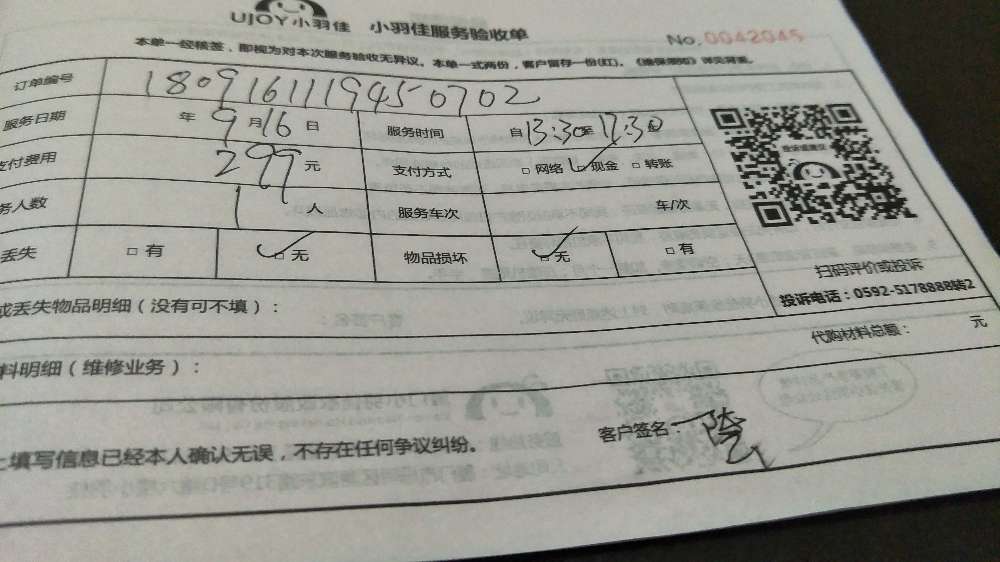 UJOY小羽佳 小羽佳服务验收单
No.0042045
本单一经核签，即视为对本次服务验收无异议。本单一式两份，客户留存一份(红)。
订单编号 1809161119450702
服务日期 年 9月16日 服务时间 自13:30至17:30
支付费用 299元 支付方式 □网络 □现金 □转账
务人数 1 人 服务车次 车/次
丢失 □有 □无 物品损坏 □无 □有
扫码评价或投诉
投诉电话：0592-5178888转2
或丢失物品明细（没有可不填）：
代购材料总额： 元
料明细（维修业务）：
上填写信息已经本人确认无误，不存在任何争议纠纷。 客户签名：